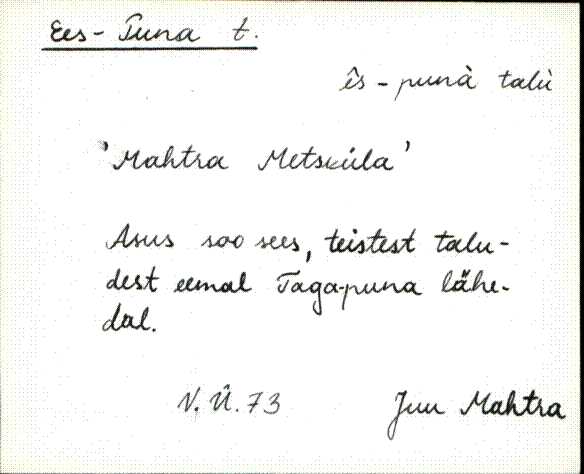 Ees-Puna t.
ês-punà talù
'Mahtra Metsküla'
Asus soo sees, teistest talu-
dest eemal Taga-puna lähe-
dal.
N. Ü. 73 Juu Mahtra